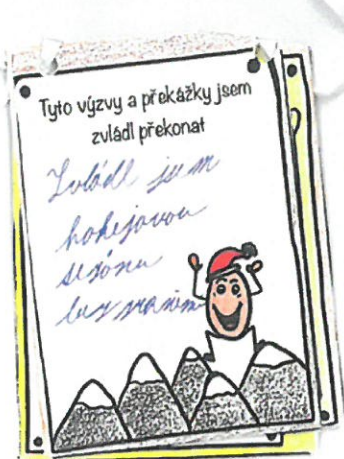 Tyto výzvy a překážky jsem
zvládl překonat
Zvládl jsem
hokejovou
sezónu
bez zranění